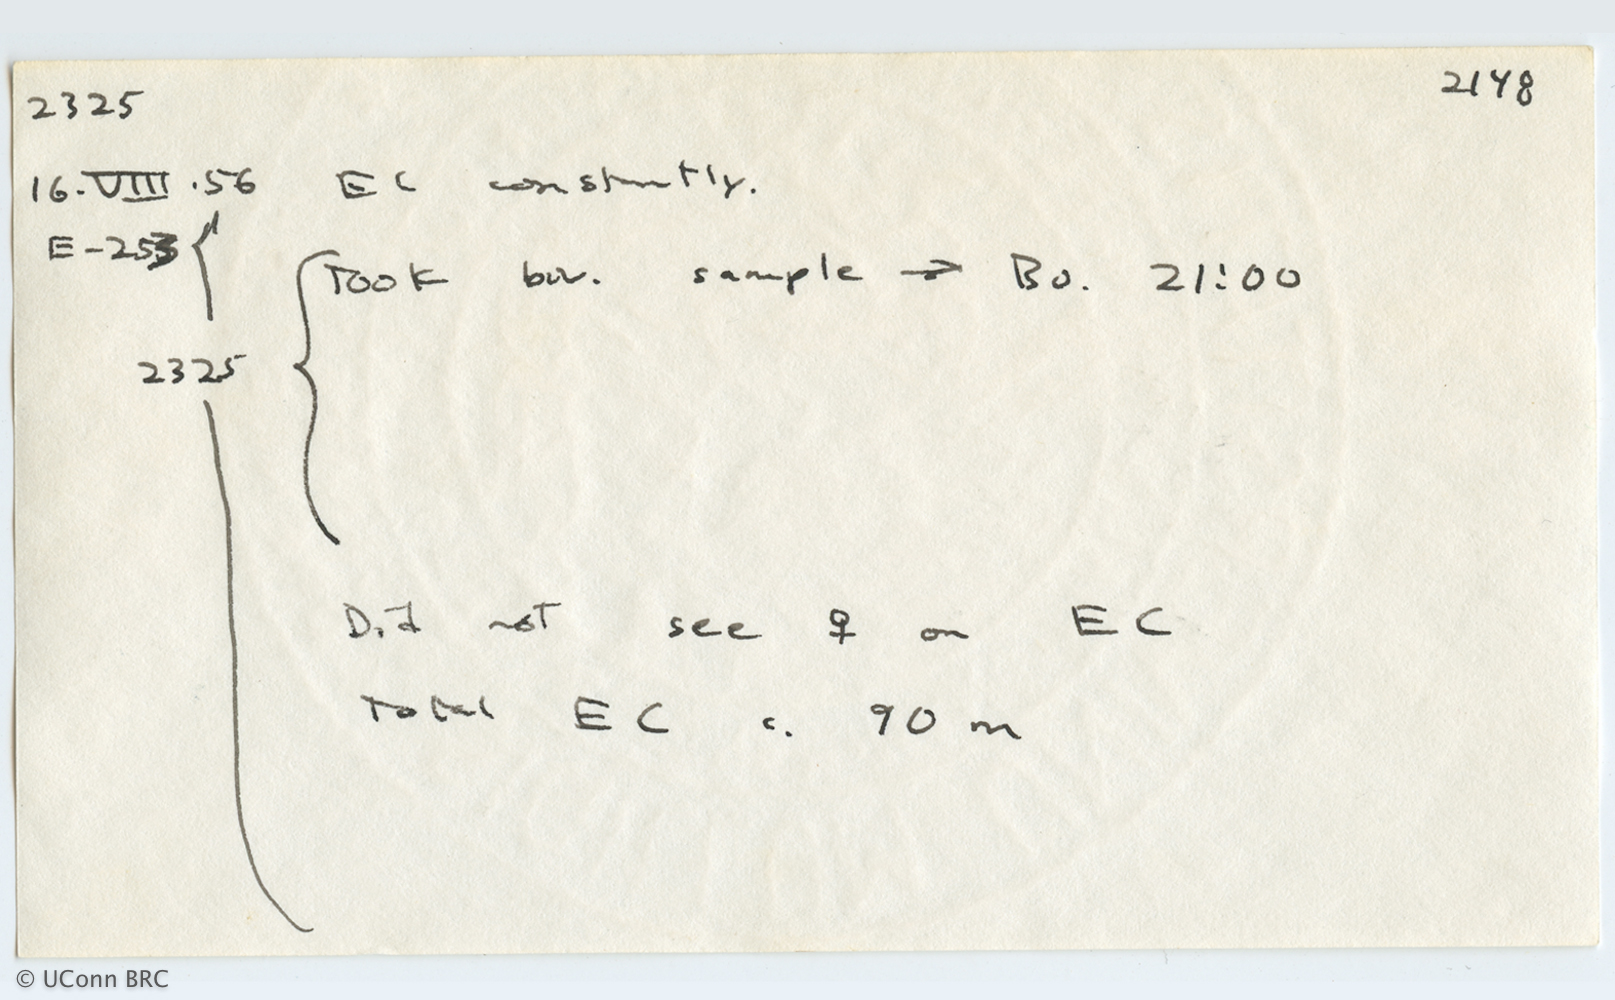 2325
2148
16.VIII.56 EC constantly.
E-253
Took biv. sample → Bo. 21:00
2325
Did not see ♀ on EC
Total EC c. 90 m
© UConn BRC